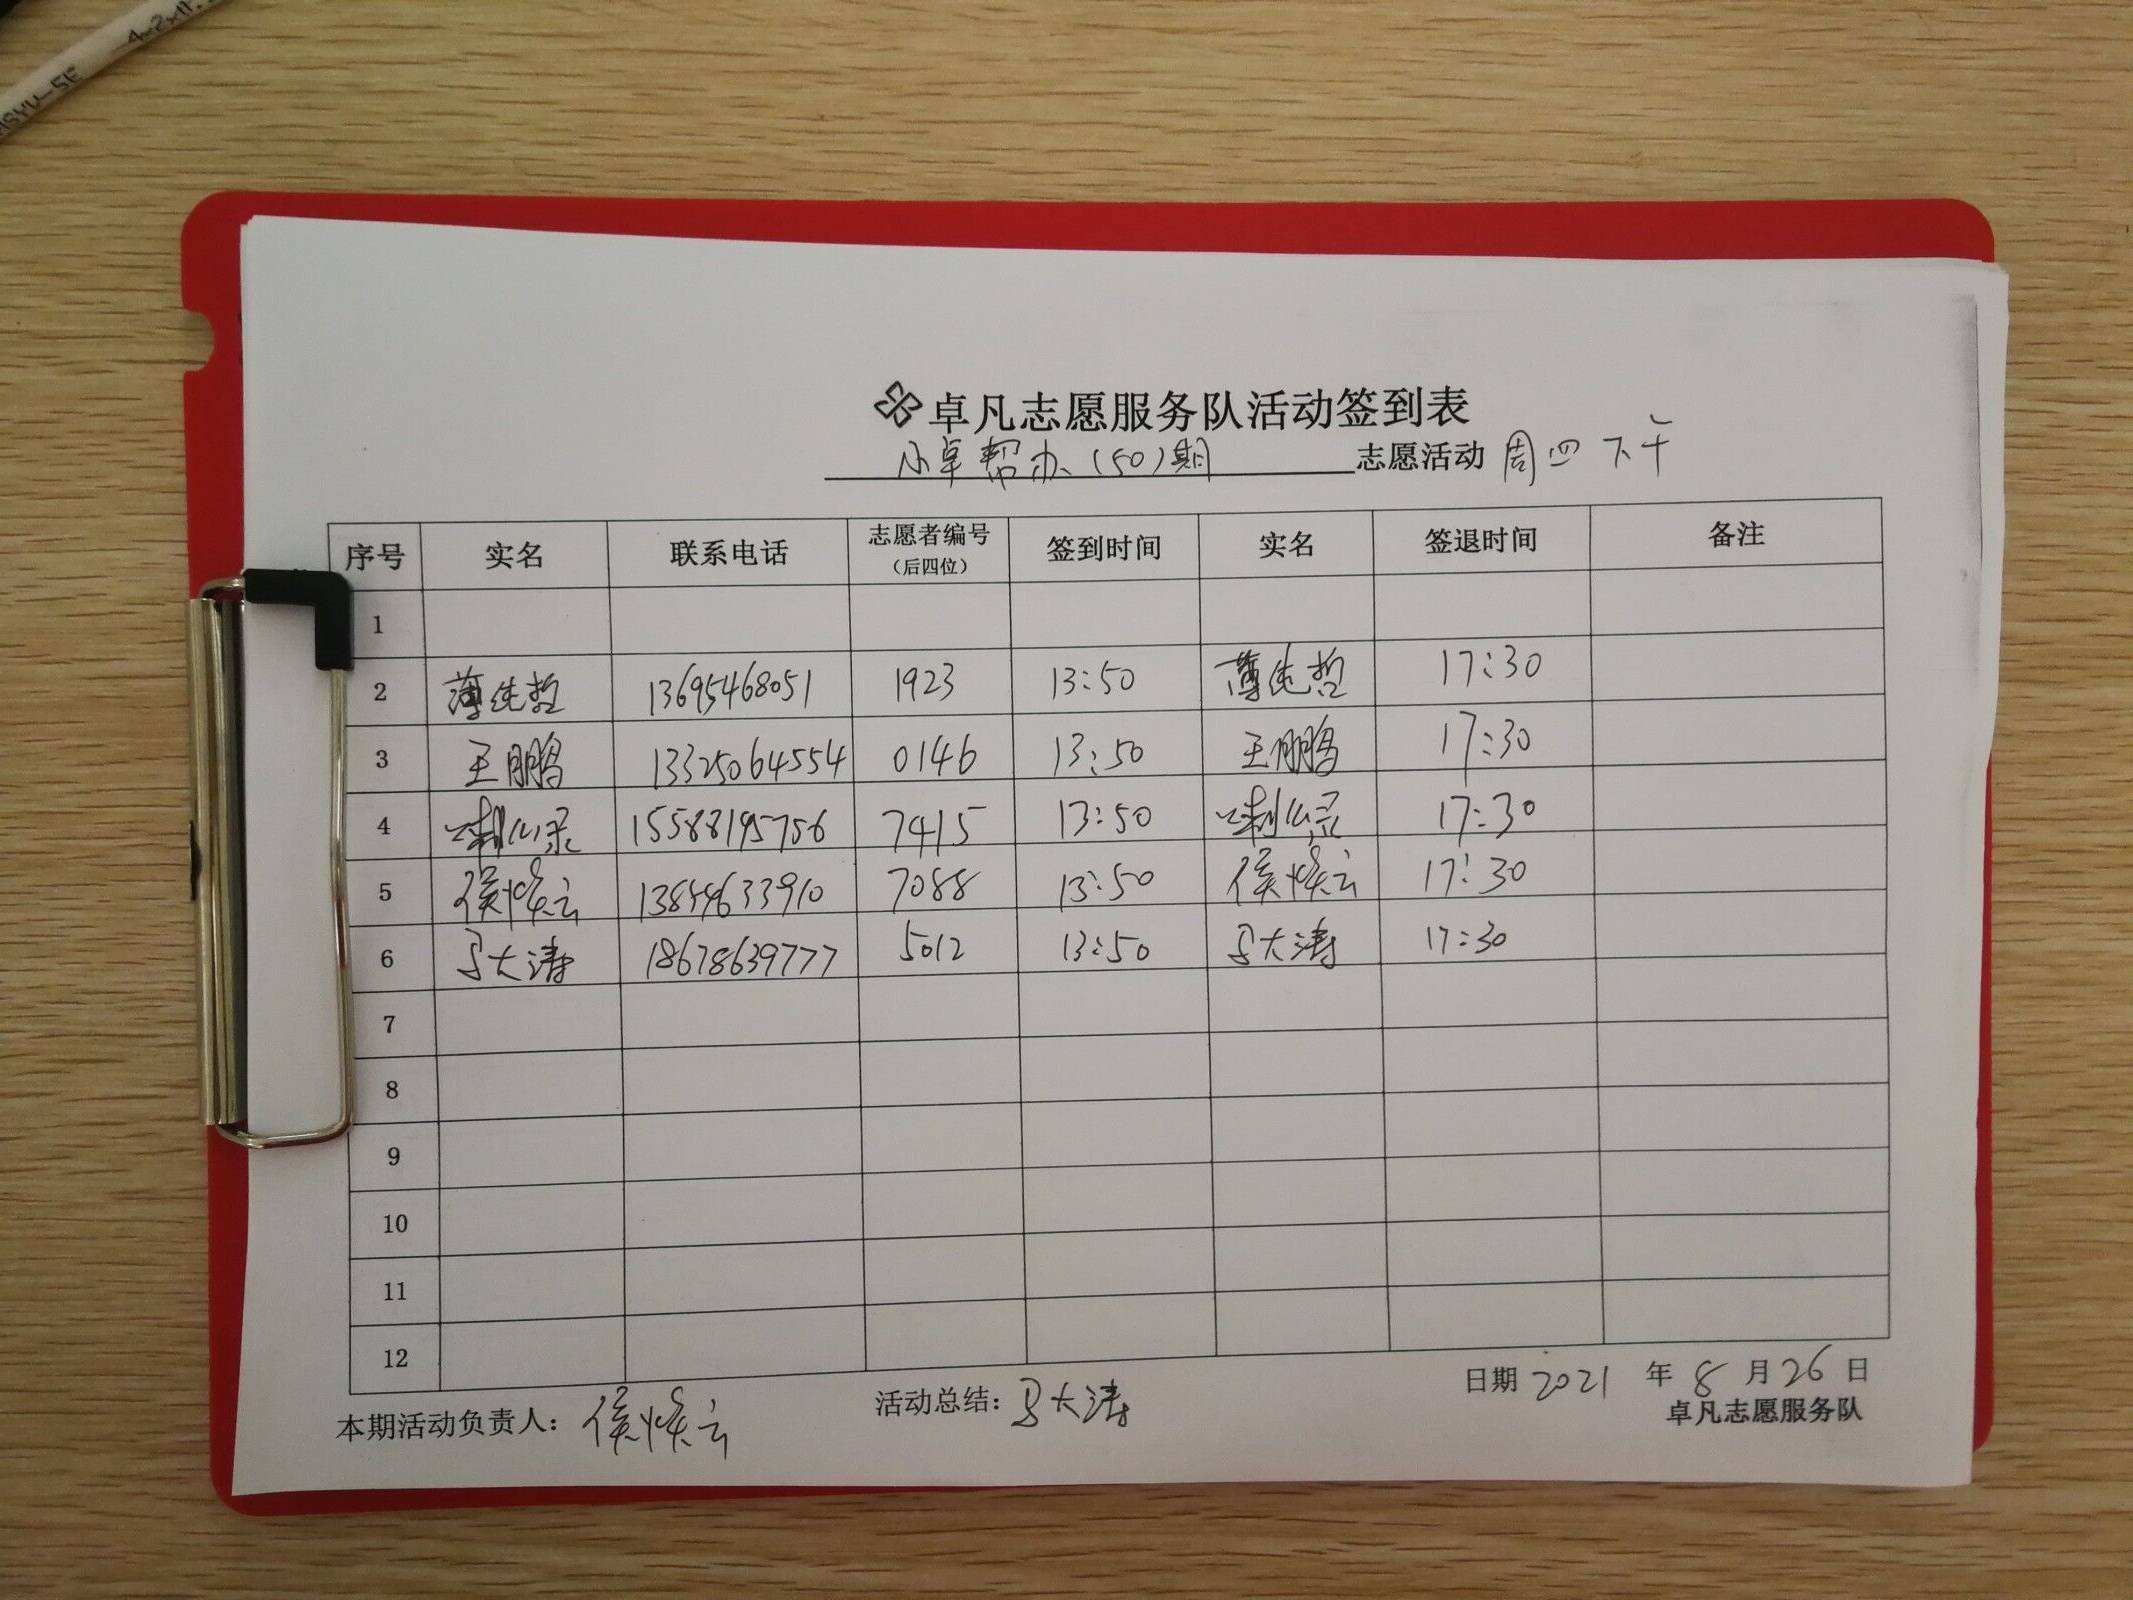 4×2×11.
HSYV-5E
卓凡志愿服务队活动签到表
小卓帮办(50)期 志愿活动 周四下午
序号 实名 联系电话 志愿者编号(后四位) 签到时间 实名 签退时间 备注
1
2 薄纯哲 13695468051 1923 13:50 薄纯哲 17:30
3 王鹏 13325064554 0146 13:50 王鹏 17:30
4 15588195756 7415 13:50 17:30
5 侯焕云 13854633910 7088 13:50 侯焕云 17:30
6 马大涛 18678639777 5012 13:50 马大涛 17:30
7
8
9
10
11
12
本期活动负责人: 侯焕云 活动总结: 马大涛 日期 2021 年 8 月 26 日
卓凡志愿服务队